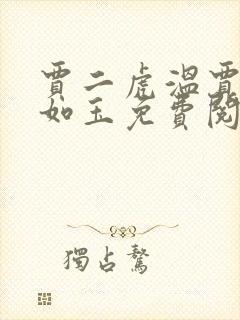 賈二虎溫賈
如玉免費閱
獨占鰲